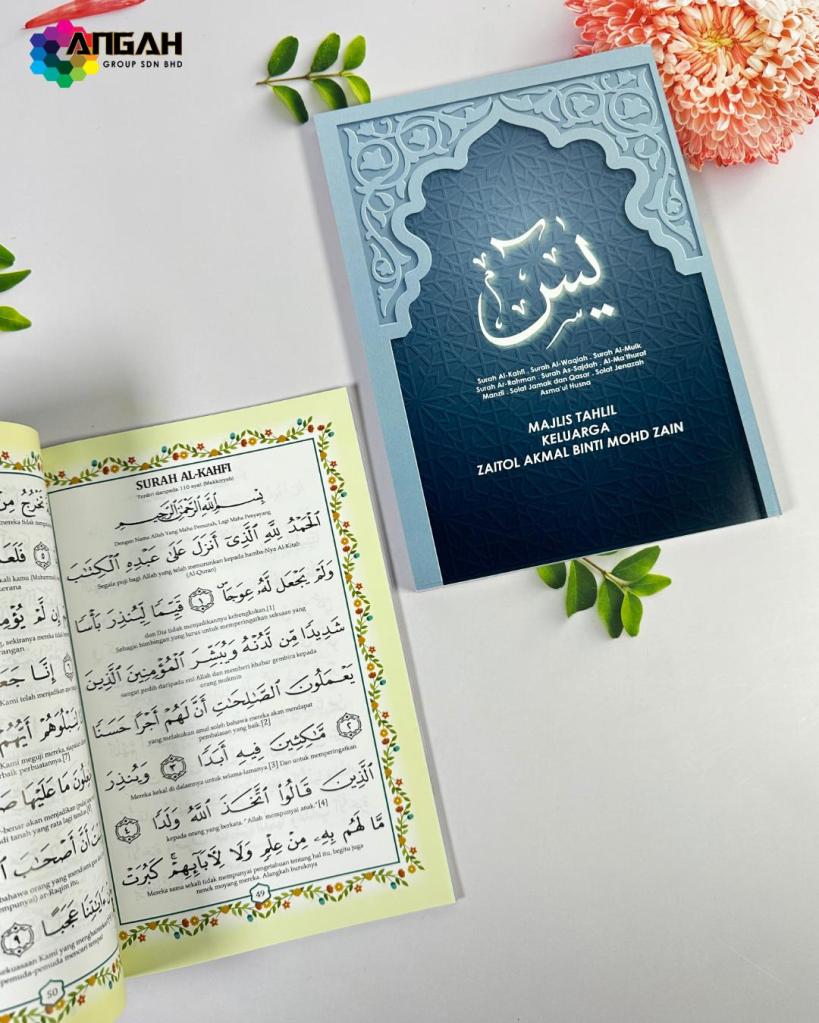 ANGAH
GROUP SDN BHD
يس
Surah Al-Kahfi . Surah Al-Waqiah . Surah Al-Mulk
Surah Ar-Rahman . Surah As-Sajdah . Al-Ma'thurat
Manzil . Solat Jamak dan Qasar . Solat Jenazah
Asma'ul Husna
MAJLIS TAHLIL
KELUARGA
ZAITOL AKMAL BINTI MOHD ZAIN
SURAH AL-KAHFI
Terdiri daripada 110 ayat (Makkiyyah)
بِسْمِ اللَّهِ الرَّحْمَٰنِ الرَّحِيمِ
Dengan Nama Allah Yang Maha Pemurah, Lagi Maha Penyayang
الْحَمْدُ لِلَّهِ الَّذِي أَنْزَلَ عَلَىٰ عَبْدِهِ الْكِتَابَ
Segala puji bagi Allah yang telah menurunkan kepada hamba-Nya Al-Kitab
(Al-Quran)
وَلَمْ يَجْعَلْ لَهُ عِوَجًا ۜ ١ قَيِّمًا لِيُنْذِرَ بَأْسًا
dan Dia tidak menjadikannya kebengkokan.[1]
Sebagai bimbingan yang lurus untuk memperingatkan seksaan yang
شَدِيدًا مِنْ لَدُنْهُ وَيُبَشِّرَ الْمُؤْمِنِينَ الَّذِينَ
sangat pedih daripada sisi Allah dan memberi khabar gembira kepada
orang mukmin
يَعْمَلُونَ الصَّالِحَاتِ أَنَّ لَهُمْ أَجْرًا حَسَنًا
yang melakukan amal soleh bahawa mereka akan mendapat
pembalasan yang baik.[2]
٢ مَاكِثِينَ فِيهِ أَبَدًا ٣ وَيُنْذِرَ
Mereka kekal di dalamnya untuk selama-lamanya.[3] Dan untuk memperingatkan
الَّذِينَ قَالُوا اتَّخَذَ اللَّهُ وَلَدًا ٤
kepada orang yang berkata, "Allah mempunyai anak."[4]
مَا لَهُمْ بِهِ مِنْ عِلْمٍ وَلَا لِآبَائِهِمْ ۚ كَبُرَتْ
Mereka sama sekali tidak mempunyai pengetahuan tentang hal itu, begitu juga
nenek moyang mereka. Alangkah buruknya
49
تَخْرُجُ مِنْ
mereka tidak
٥ فَلَعَلَّ
kali kamu (Muhammad
kerana
إِنْ لَمْ يُؤْمِنُوا
sekiranya mereka tidak
٦ إِنَّا جَعَلْنَا
Kami telah menjadikan apa
لِنَبْلُوَهُمْ أَيُّهُمْ
Kami menguji mereka, siapakah
baik perbuatannya.[7]
مَا عَلَيْهَا
-benar akan menjadikan
di tanah yang rata lagi tandus
أَنَّ أَصْحَابَ
bahawa orang yang mendiami gua
ar-Raqim itu,
عَجَبًا ٩
kekuasaan Kami yang menghairankan
pemuda-pemuda mencari tempat
50